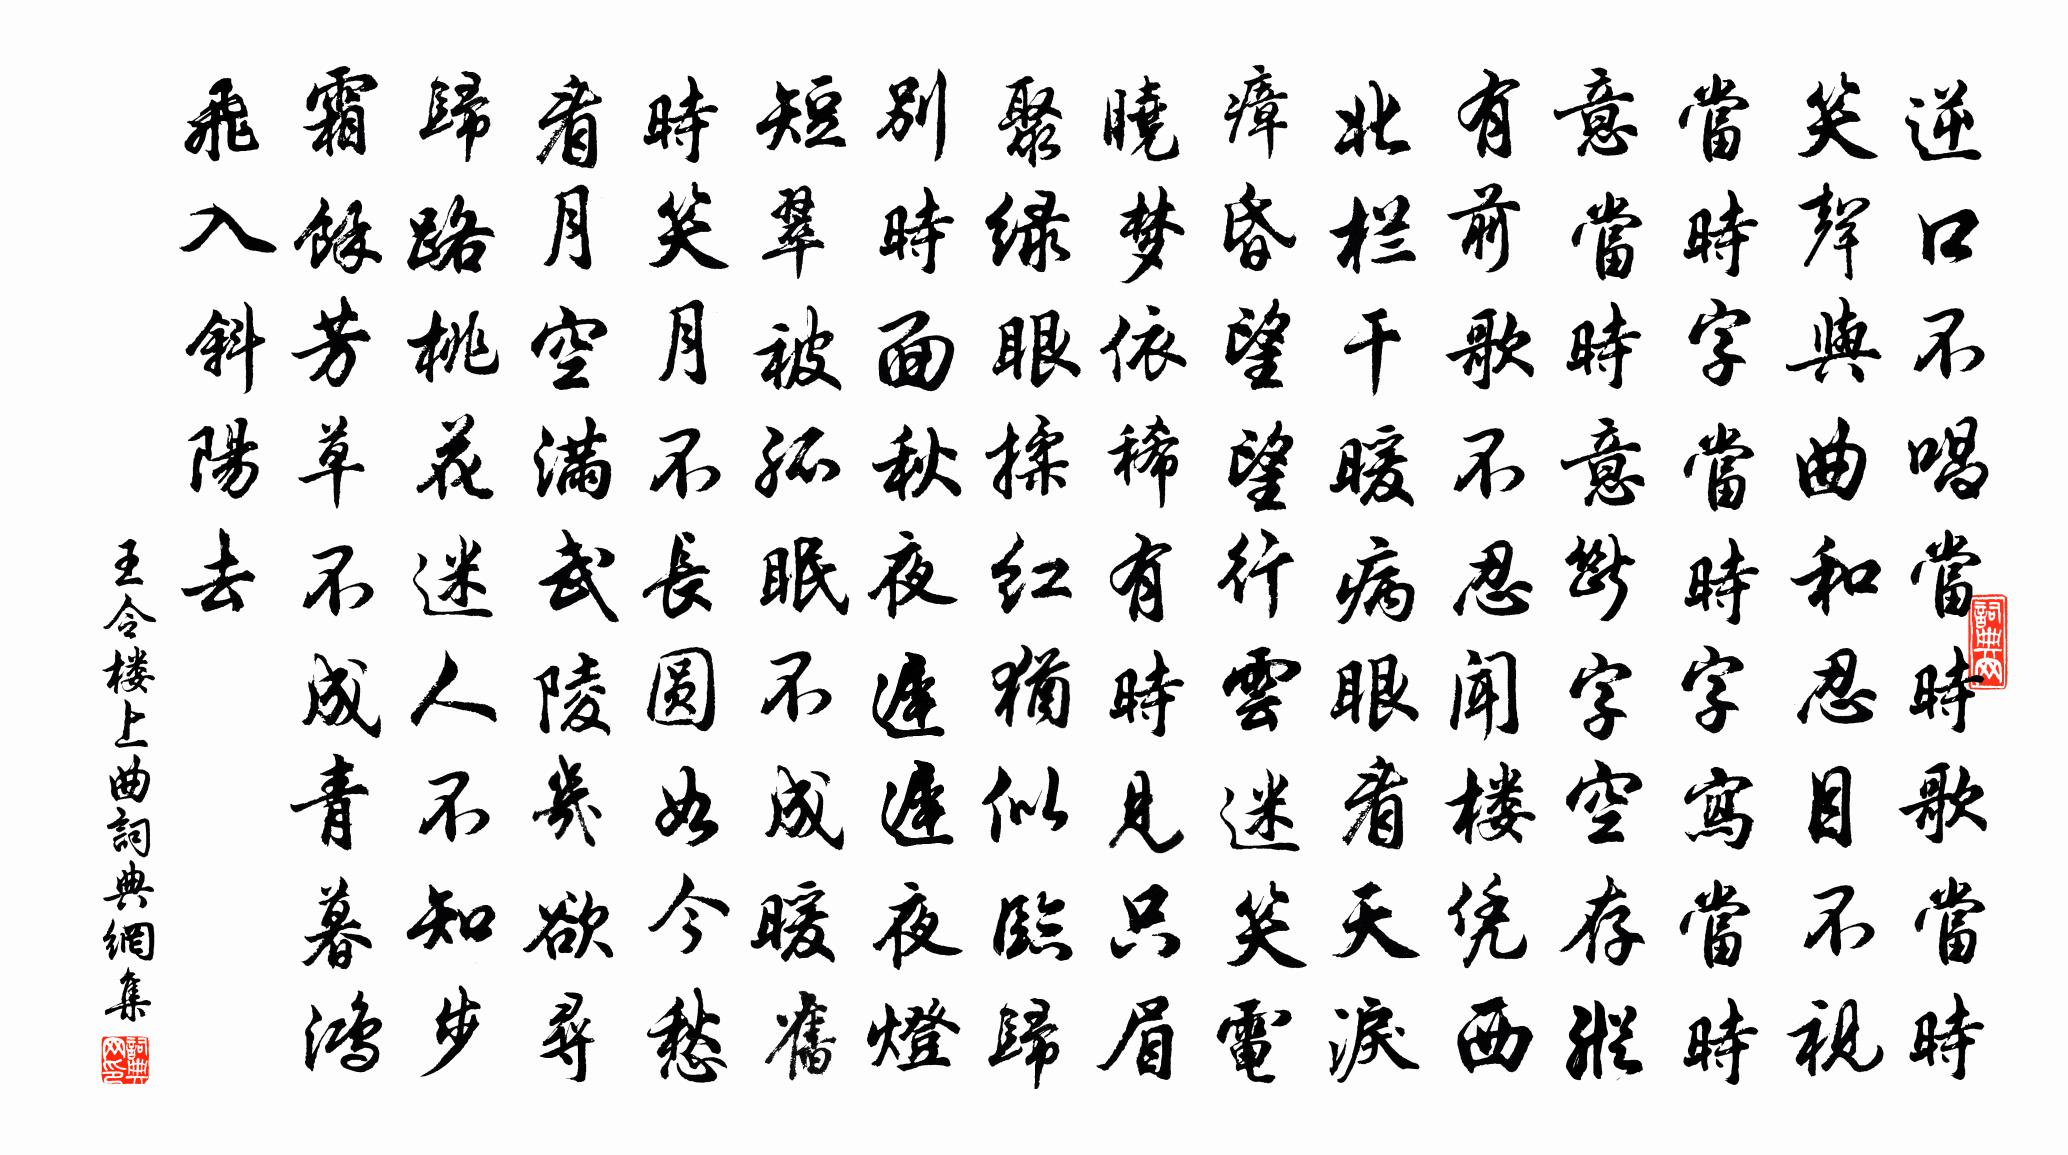 逆口不唱當時歌當時
笑聲與曲和忍目不視
當時字當時字寫當時
意當時意斷字空存縱
有前歌不忍闻楼凭西
北栏干暖病眼看天淚
瘴昏望望行雲迷笑電
曉梦依稀有時見只眉
聚绿眼揉红猶似臨歸
别時面秋夜遲遲夜燈
短翠被孤眠不成暖舊
時笑月不長圆如今愁
看月空满武陵幾欲尋
歸路桃花迷人不知步
霜餘芳草不成青暮鸿
飛入斜陽去
王令楼上曲詞典網集
詞典网
詞典网印